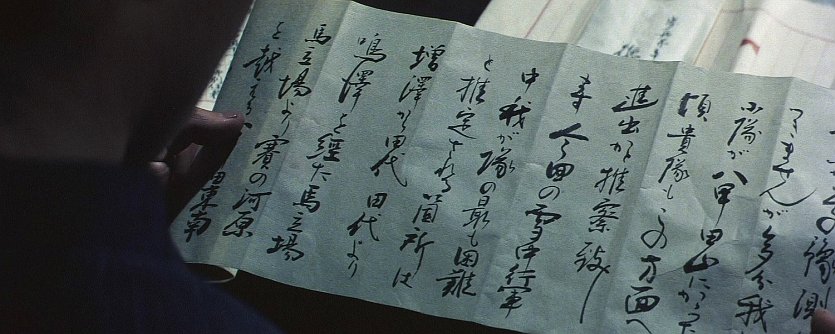 の豫測
きませんが多分我
小隊が八甲田山にかかった
頃貴隊もこの方面へ
進出かと推察致し
ます 今回の雪中行軍
中我が隊の最も困難
と推定される箇所は
増澤から田代 田代より
鳴澤を経た馬立場
馬立場より賽の河原
を越
田東南